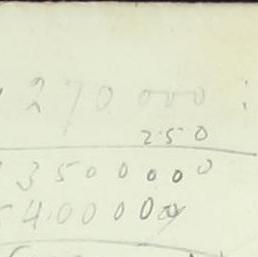 270 000 :
250
3500000
400000